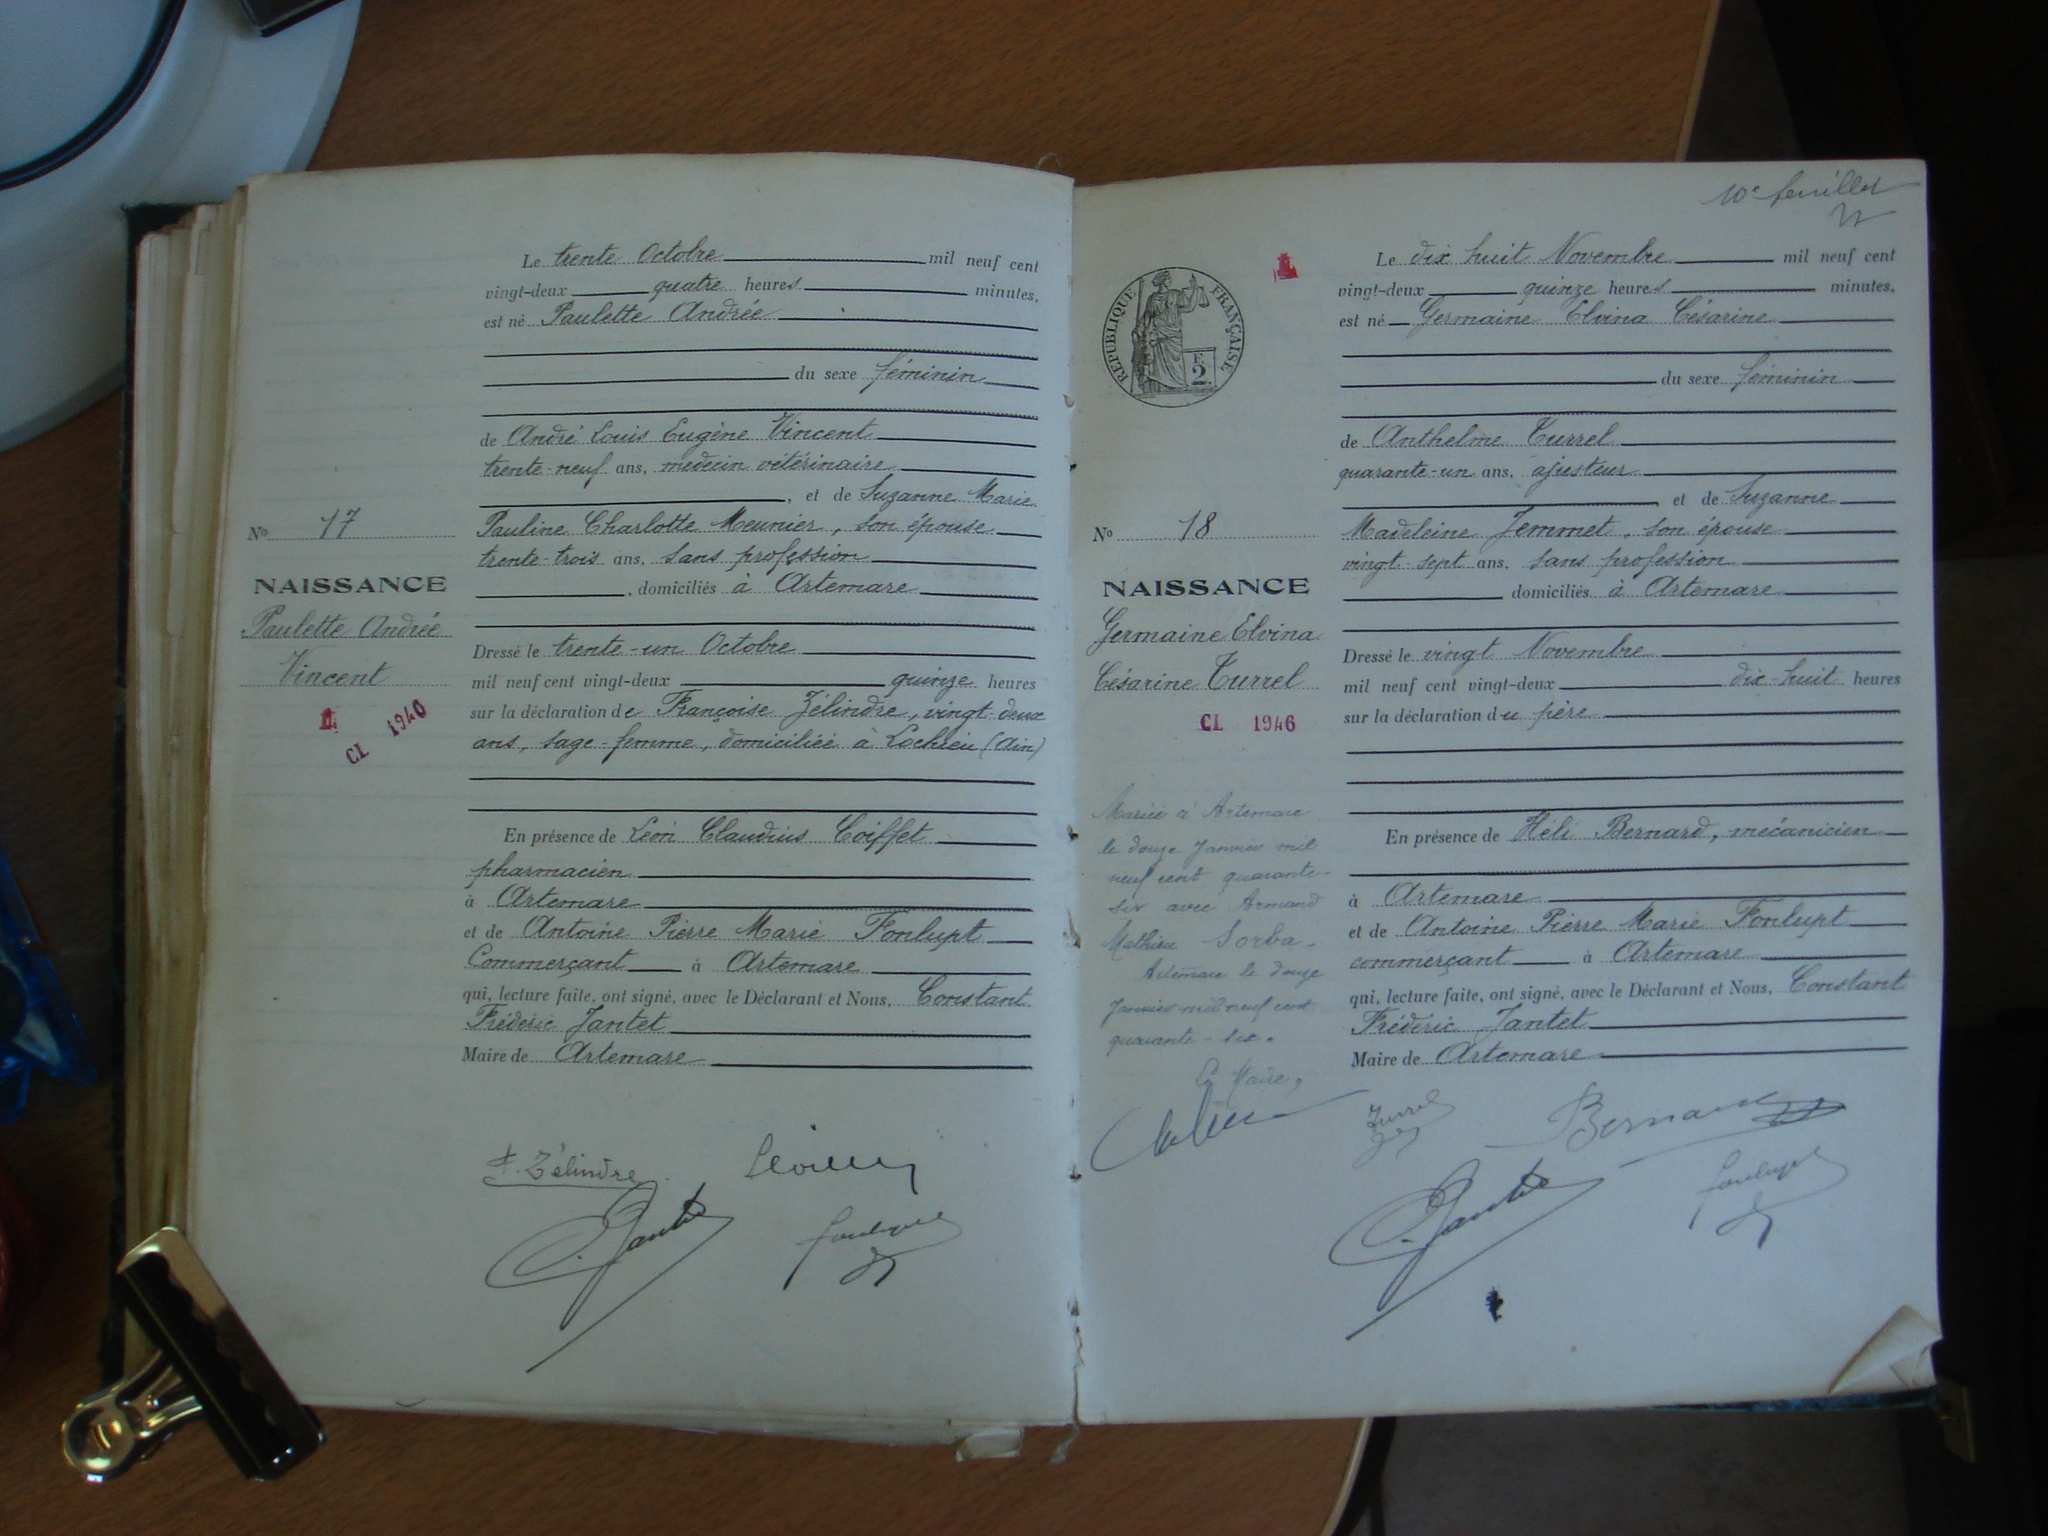 Le trente Octobre mil neuf cent
vingt-deux quatre heures minutes,
est né Paulette Andrée
du sexe féminin
de André Louis Eugène Vincent
trente-neuf ans, medecin vétérinaire
, et de Suzanne Marie
Pauline Charlotte Meunier, son épouse
trente-trois ans, sans profession
, domiciliés à Artemare
Dressé le trente-un Octobre
mil neuf cent vingt-deux quinze heures
sur la déclaration de Françoise Zélindre, vingt-deux
ans, sage-femme, domiciliée à Lochieu (Ain)
En présence de Léon Claudius Coiffet
pharmacien
à Artemare
et de Antoine Pierre Marie Fonlupt
Commerçant à Artemare
qui, lecture faite, ont signé, avec le Déclarant et Nous, Constant
Frédéric Jantet
Maire de Artemare
No 17
NAISSANCE
Paulette Andrée
Vincent
CI 1940
F. Zélindre
Jantet
Fonlupt
10e feuillet
RÉPUBLIQUE FRANÇAISE
F.
2
Le dix huit Novembre mil neuf cent
vingt-deux quinze heures minutes,
est né Germaine Elvina Césarine
du sexe féminin
de Anthelme Turrel
quarante-un ans, ajusteur
, et de Suzanne
Madeleine Jemmet, son épouse
vingt-sept ans, sans profession
domiciliés à Artemare
Dressé le vingt Novembre
mil neuf cent vingt-deux dix-huit heures
sur la déclaration du père
En présence de Héli Bernard, mécanicien
à Artemare
et de Antoine Pierre Marie Fonlupt
commerçant à Artemare
qui, lecture faite, ont signé, avec le Déclarant et Nous, Constant
Frédéric Jantet
Maire de Artemare
No 18
NAISSANCE
Germaine Elvina
Césarine Turrel
CI 1946
Mariée à Artemare
le douze Janvier mil
neuf cent quarante-
six avec Armand
Mathieu Sorba.
Artemare le douze
Janvier mil neuf cent
quarante-six.
Le Maire,
Turrel
Bernard
Jantet
Fonlupt